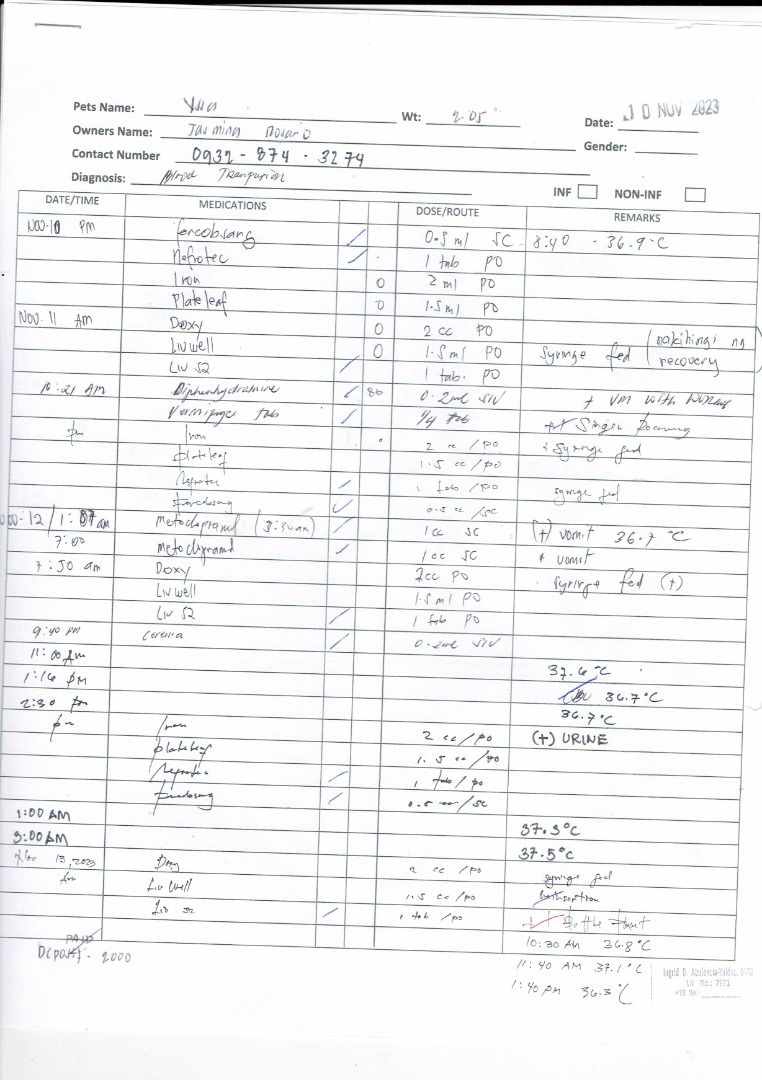 Pets Name: Wt: 2.05 Date: 10 NOV 2023
Owners Name: Jasmina Rosario Gender:
Contact Number 0932 - 874 - 3274
Diagnosis: Blood Tranfusion INF NON-INF
DATE/TIME MEDICATIONS DOSE/ROUTE REMARKS
Nov. 10 PM fercobsang 0.5 ml SC 8:40 - 36.9°C
Nefrotec 1 tab PO
Iron 0 2 ml PO
Plateleaf 0 1.5 ml PO
Nov. 11 AM Doxy 0 2 cc PO
Livwell 0 1.5 ml PO syringe fed (nakihingi ng recovery
Liv 52 1 tab. PO
10:21 AM Diphenhydramine 0.2ml SIV + VM with
Vermifuge tab 1/4 tab
pm Iron 2 cc /PO syringe fed
plateleaf 1.5 cc /PO
Nefrotec 1 tab /PO syringe fed
Fercobsang 0.5 cc /SC
Nov. 12 / 1:07 am Metoclopramid (3:30am) 1cc SC (+) vomit 36.7 °C
7:00 metoclopramid 1cc SC + vomit
7:50 am Doxy 2cc PO syringe fed (+)
Livwell 1.5 ml PO
Liv 52 1 tab PO
9:40 pm cerenia 0.2ml SIV
11:00 AM 37.6°C
1:16 PM 36.7°C
2:30 pm 36.7°C
pm Iron 2 cc /PO (+) URINE
plateleaf 1.5 cc /PO
Nefrotec 1 tab / PO
Fercobsang 0.5 cc /SC
1:00 AM 37.3°C
3:00 AM 37.5°C
Nov 13, 2023 Doxy 2 cc /PO syringe fed
Am Liv Well 1.5 cc /PO
Liv 52 1 tab /PO
PAID 10:30 AM 36.8°C
Deposit - 2000 11:40 AM 37.1°C
1:40 PM 36.3°C
Lic No.: 7901
PTR No.: